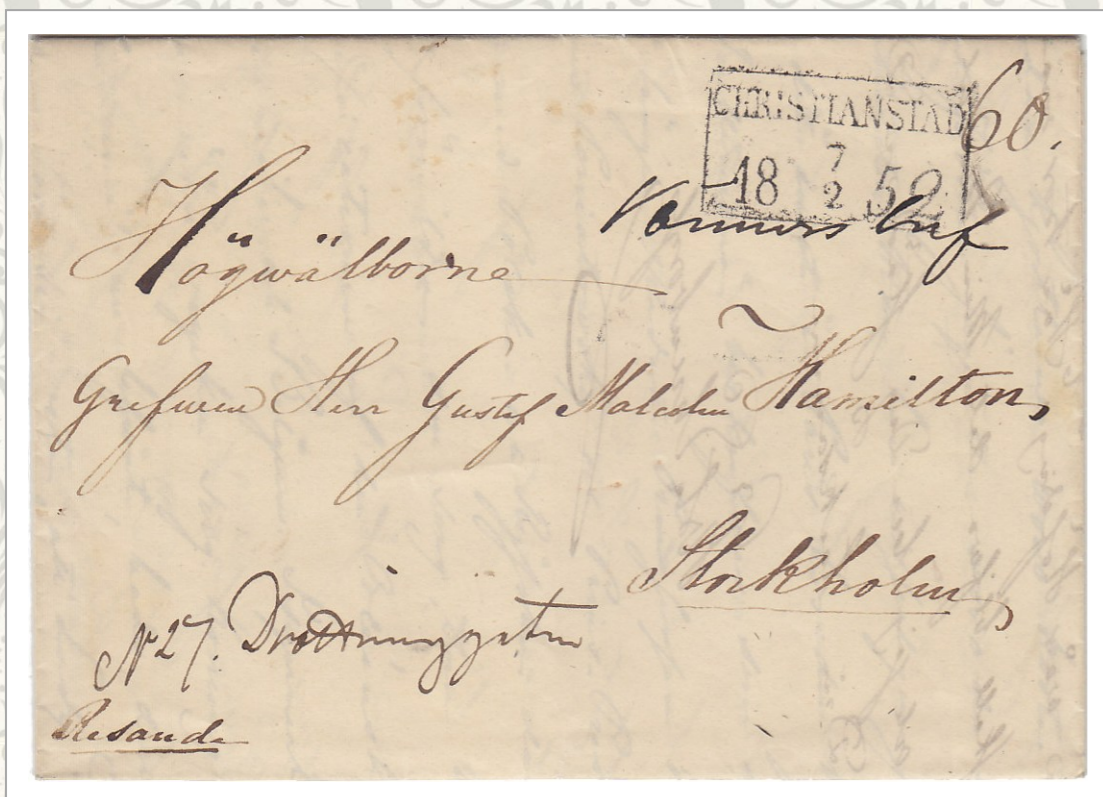 CHRISTIANSTAD
60.
18 7/2 52
Högwälborne
Grefwen Herr Gustaf Malcolm Hamilton,
Stockholm,
N 27. Drottninggatan
Resande